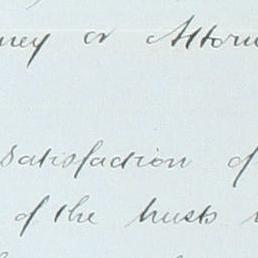 ney or Attorn
satisfaction of
of the trusts